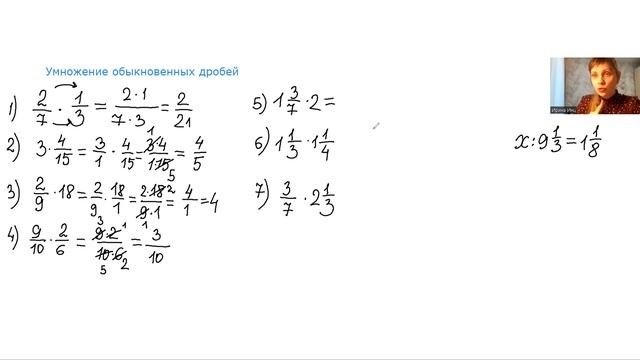 Умножение обыкновенных дробей
1) 2/7 · 1/3 = 2·1/7·3 = 2/21
2) 3 · 4/15 = 3/1 · 4/15 = 3·4/1·15 = 4/5
3) 2/9 · 18 = 2/9 · 18/1 = 2·18/9·1 = 4/1 = 4
4) 9/10 · 2/6 = 9·2/10·6 = 3/10
5) 1 3/7 · 2 =
6) 1 1/3 · 1 1/4
7) 3/7 · 2 1/3
x : 9 1/3 = 1 1/8